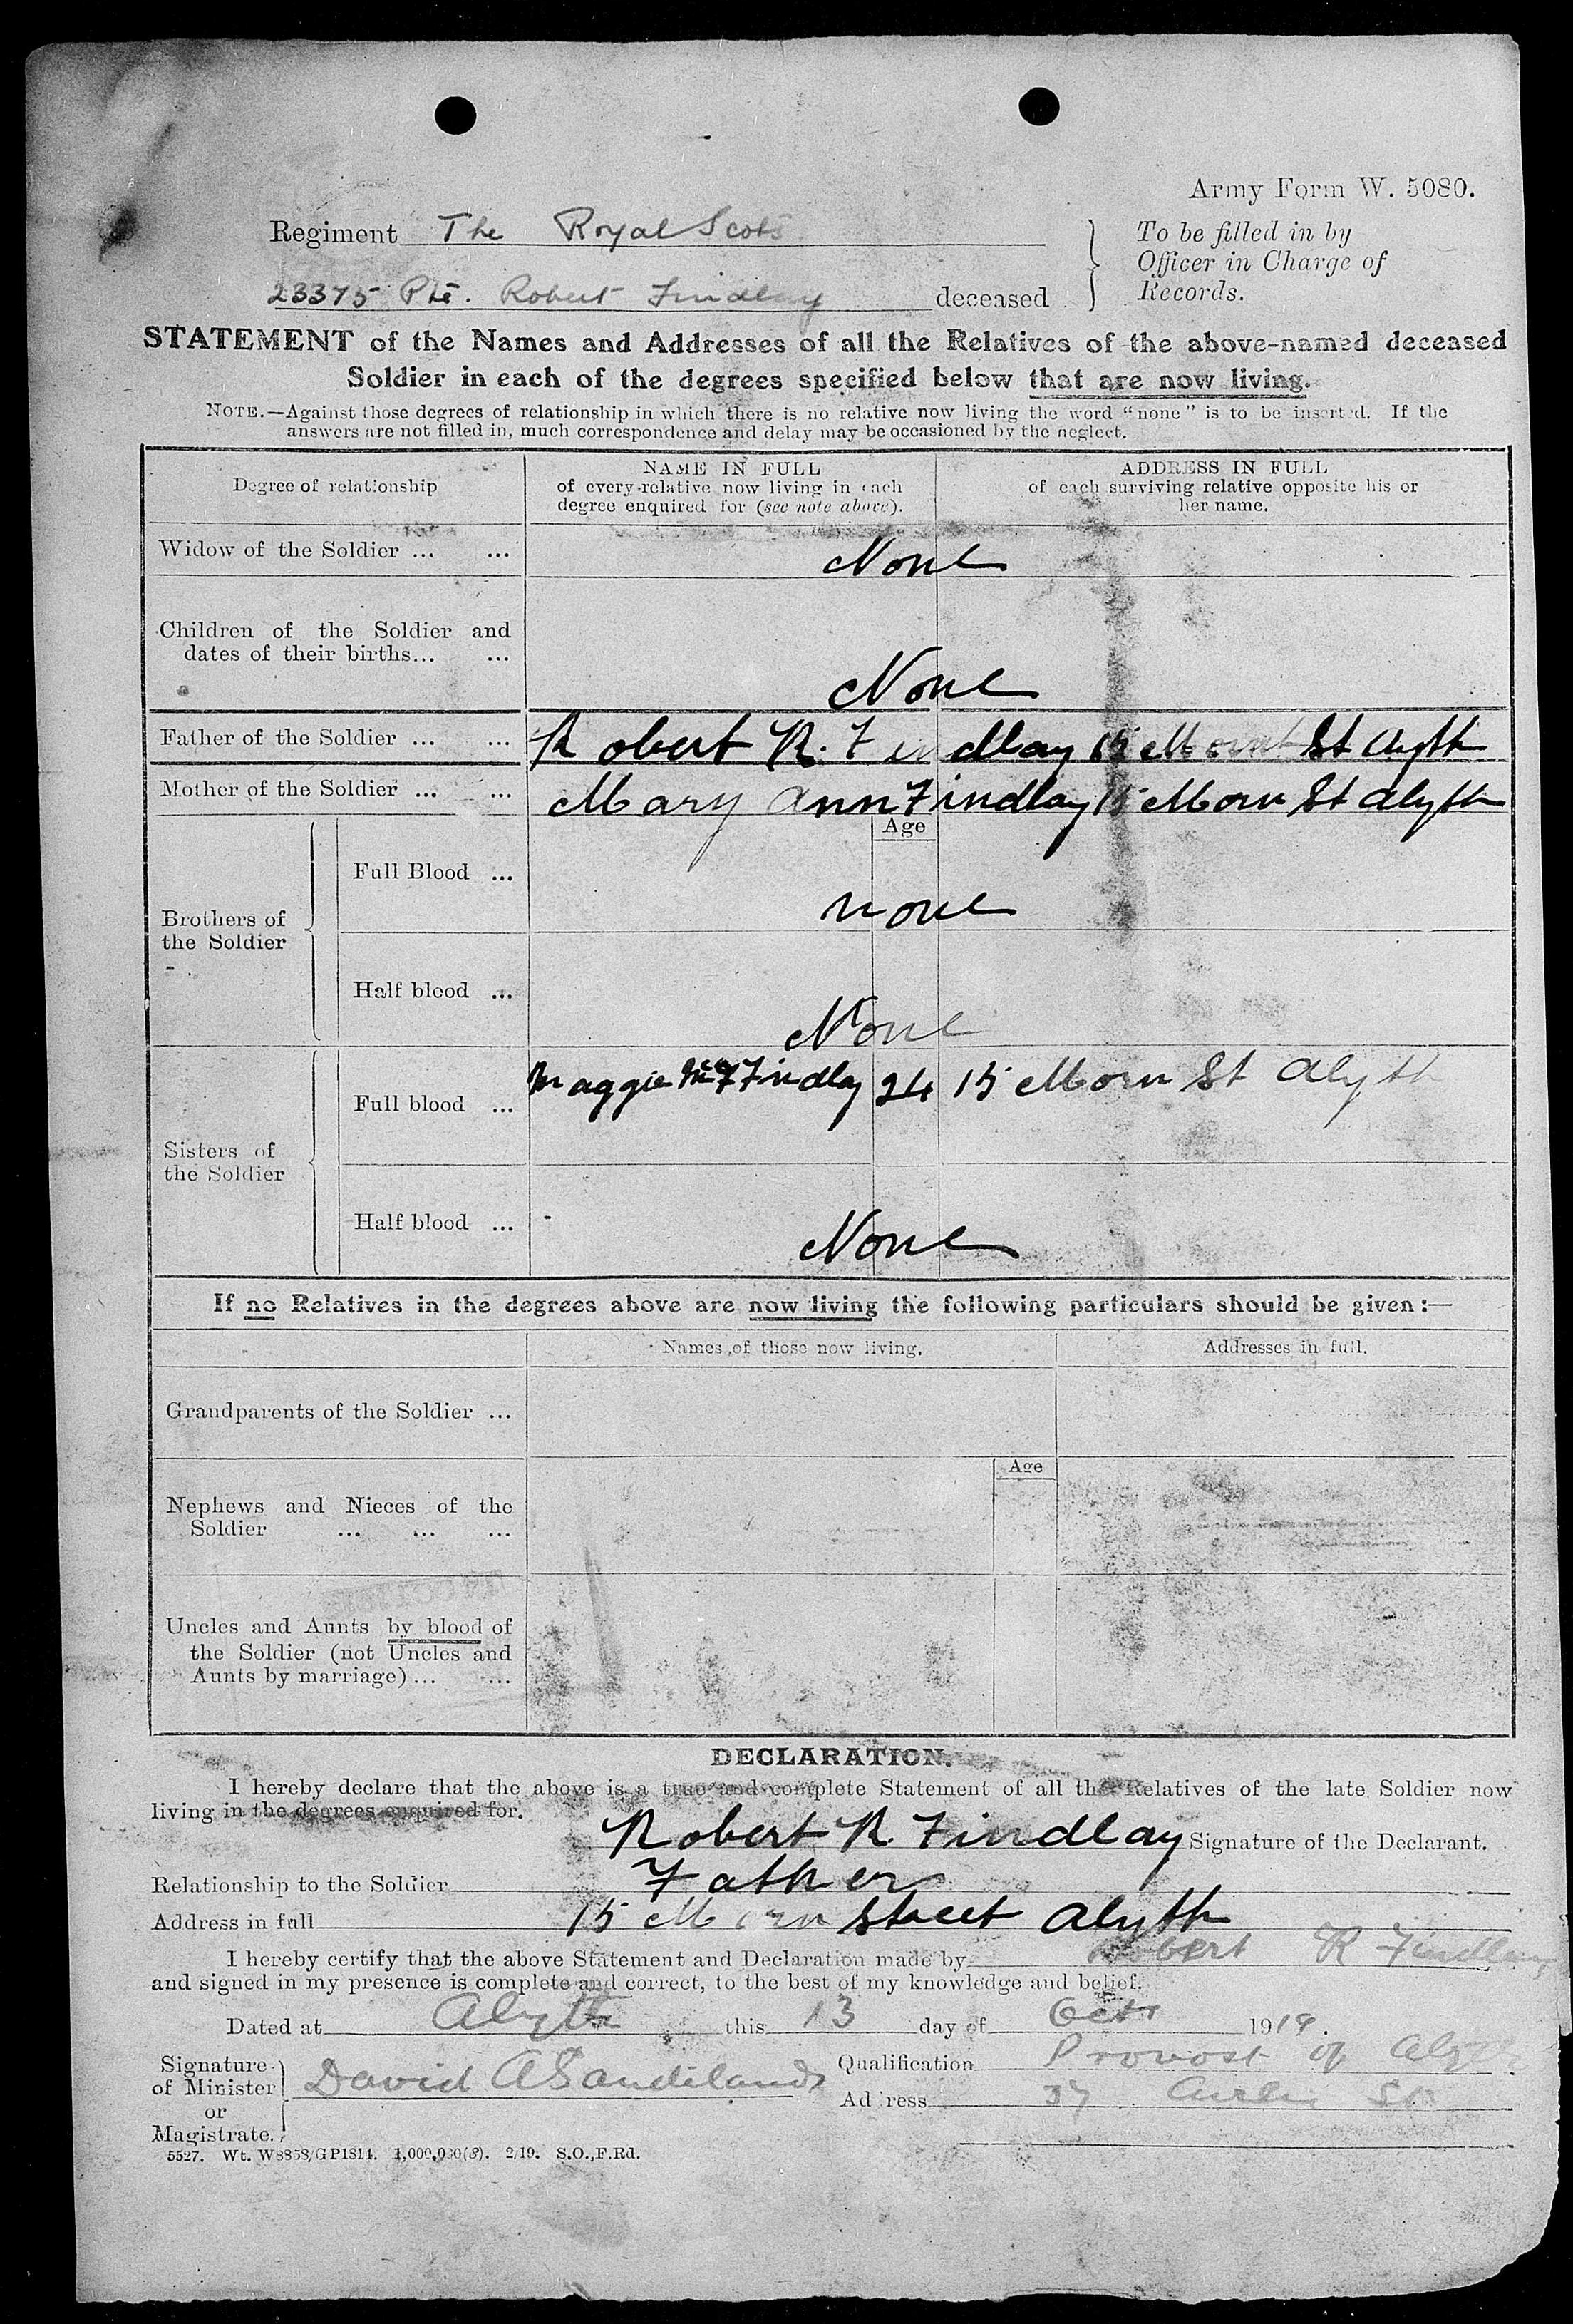 Army Form W. 5080.
Regiment The Royal Scots
To be filled in by
Officer in Charge of
Records.
23375 Pte. Robert Findlay deceased
STATEMENT of the Names and Addresses of all the Relatives of the above-named deceased
Soldier in each of the degrees specified below that are now living.
NOTE.—Against those degrees of relationship in which there is no relative now living the word "none" is to be inserted. If the
answers are not filled in, much correspondence and delay may be occasioned by the neglect.
Degree of relationship
NAME IN FULL
of every relative now living in each
degree enquired for (see note above).
ADDRESS IN FULL
of each surviving relative opposite his or
her name.
Widow of the Soldier ... ...
None
Children of the Soldier and
dates of their births... ...
None
Father of the Soldier ... ... Robert R. Findlay 15 Morn St Alyth
Mother of the Soldier ... ... Mary Ann Findlay 15 Morn St Alyth
Age
Brothers of
the Soldier
Full Blood ...
none
Half blood ...
None
Sisters of
the Soldier
Full blood ... Maggie Findlay 24 15 Morn St Alyth
Half blood ...
None
If no Relatives in the degrees above are now living the following particulars should be given:—
Names of those now living. Addresses in full.
Grandparents of the Soldier ...
Age
Nephews and Nieces of the
Soldier ... ... ...
Uncles and Aunts by blood of
the Soldier (not Uncles and
Aunts by marriage) ... ...
DECLARATION.
I hereby declare that the above is a true and complete Statement of all the Relatives of the late Soldier now
living in the degrees enquired for.
Robert R Findlay Signature of the Declarant.
Relationship to the Soldier Father
Address in full 15 Morn Street Alyth
I hereby certify that the above Statement and Declaration made by Robert R Findlay
and signed in my presence is complete and correct, to the best of my knowledge and belief.
Dated at Alyth this 13 day of Octr 1919.
Signature
of Minister
or
Magistrate.
David A Sandilands
Qualification Provost of Alyth
Address 37 Airlie St
5527. Wt. W8858/GP1814. 1,000,000(8). 2/19. S.O.,F.Rd.